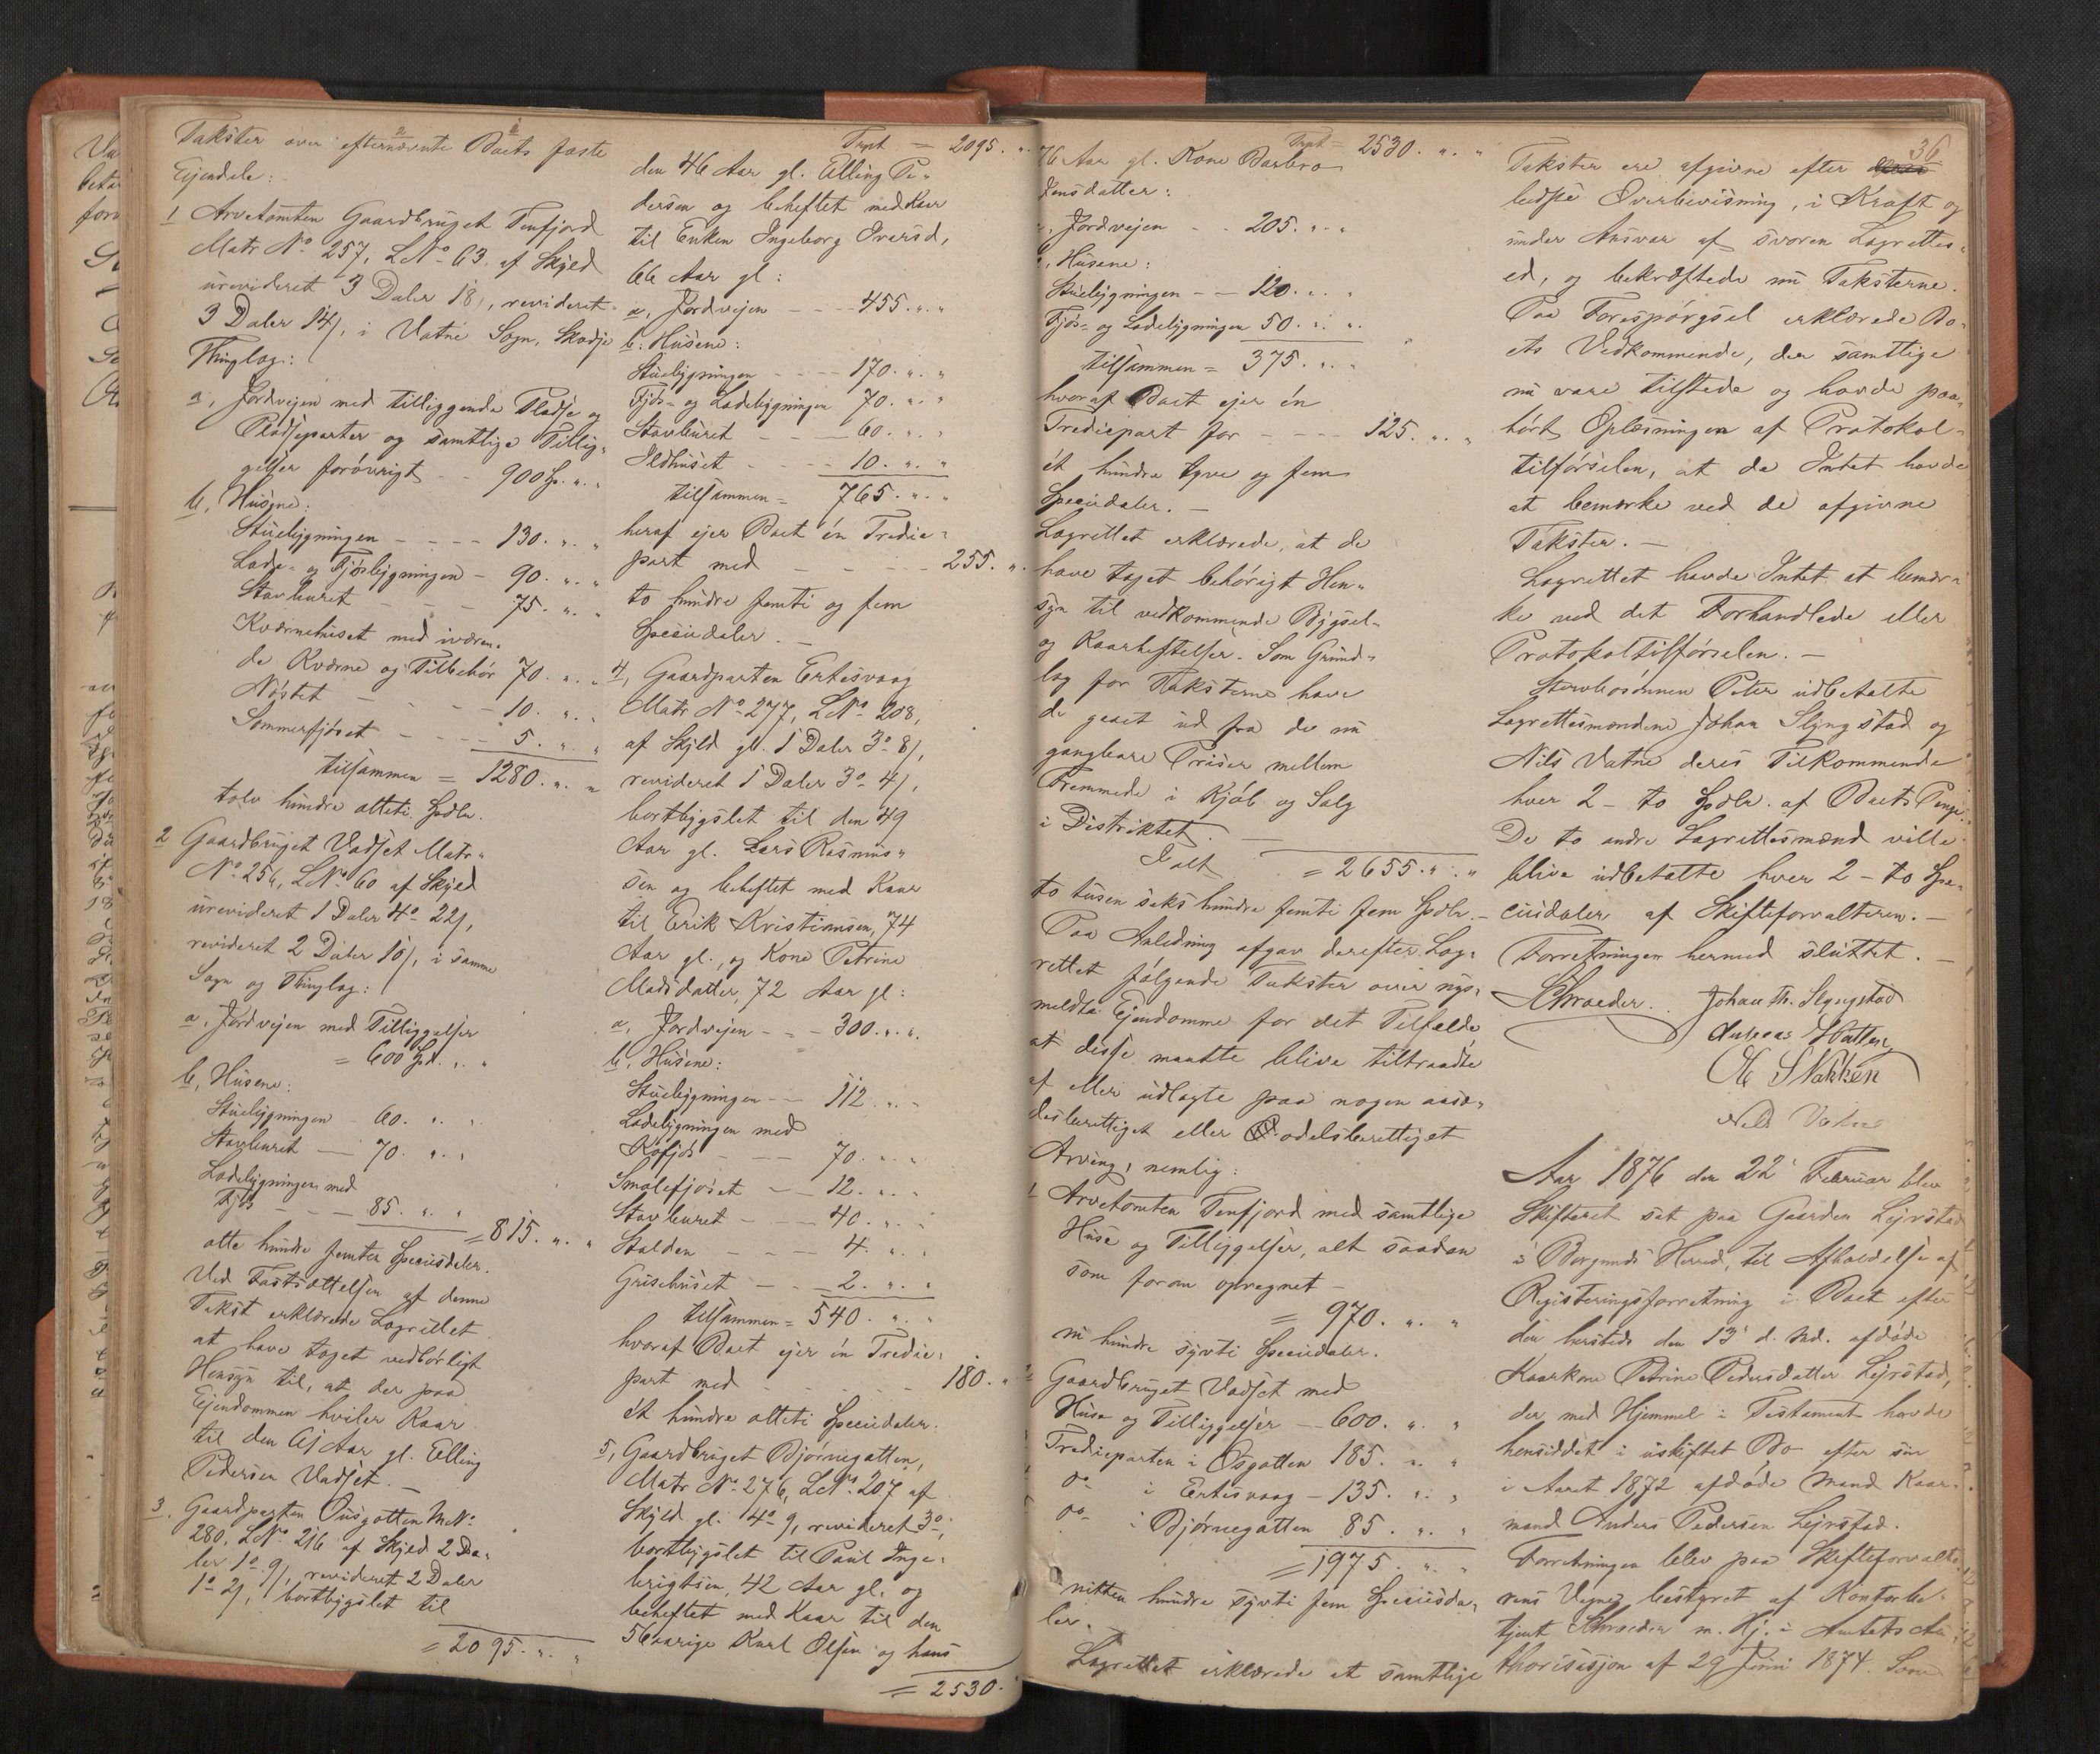 Takster over efternævnte Boets faste
Ejendele:
1 Arvetomten Gaardbruget Tenfjord
Matr No 257, LNo 63 af Skyld
urevideret 3 Daler 18 , revideret
3 Daler 14 , i Vatne Sogn, Skodje
Thinglag:
a, Jordvejen med tilliggende Pladse og
Pladseparter og samtlige Tillig-
gelser forøvrigt - - 900 Sp. " "
b, Husene:
Stuebygningen - - - - 130. " "
Lade- og Fjøsbygningen - 90. " "
Stavburet - - - 75. " "
Kværnehuset med iværen-
de Kværne og Tilbehør 70. " "
Nøstet - - - - - 10. " "
Sommerfjøset - - - - 5. " "
tilsammen = 1280. " "
tolv hundre otteti Spdlr.
2 Gaardbruget Vadset Matr-
No 256, LNo 60 af Skyld
urevideret 1 Daler 4o 22 ,
revideret 2 Daler 16 , i samme
Sogn og Thinglag:
a, Jordvejen med Tilliggelser
= 600 Spd. " "
b, Husene:
Stuebygningen - 60. " "
Stavburet — 70. " "
Ladebygningen med
Fjøs - - - 85. " "
= 815. " "
otte hundre femten Speciesdaler.
Ved Fastsættelsen af denne
Takst erklærede Lagrettet
at have taget vedbørligt
Hensyn til, at der paa
Ejendommen hviler Kaar
til den 61 Aar gl. Elling
Pedersen Vadset. —
3. Gaardparten Ousgotten MNo
280, LNo 216 af Skyld 2 Da-
ler 1o 9 , revideret 2 Daler
1o 2 , bortbygslet til
= 2095. " "
Trpt = 2095. "
den 46 Aar gl. Elling Pe-
dersen og beheftet med Kaar
til Enken Ingeborg Iversd,
66 Aar gl:
a, Jordvejen - - - - 455. " "
b, Husene:
Stuebygningen - - - - 170. " "
Fjøs- og Ladebygningen 70. " "
Stavburet - - - - 60. " "
Ildhuset - - - - 10. " "
tilsammen = 765. " "
heraf ejer Boet én Tredie-
part med - - - - 255. "
to hundre femti og fem
Speciedaler. —
4, Gaardparten Ertesvaag
Matr No 277, LNo 208,
af Skyld gl. 1 Daler 3o 8 ,
revideret 1 Daler 3o 4 ,
bortbygslet til den 49
Aar gl. Lars Rasmus-
sen og beheftet med Kaar
til Erik Kristiansen, 74
Aar gl., og Kone Petrine
Madsdatter, 72 Aar gl:
a, Jordvejen - - - 300. " "
b, Husene:
Stuebygningen - - 112. " "
Ladebygningen med
Kofjøs - - - 70. " "
Smalefjøset - - 12. " "
Stavburet - - - 40. " "
Stalden - - - - 4. " "
Grisehuset - - - 2. " "
tilsammen = 540. " "
hvoraf Boet ejer én Tredie-
part med - - - - 180. "
ét hundre otteti Speciedaler.
5, Gaardbruget Bjørnegotten,
Matr No 276, LNo 207 af
Skyld gl. 4o 9, revideret 3o,
bortbygslet til Paul Inge-
brigtsen, 42 Aar gl. og
beheftet med Kaar til den
56aarige Karl Olsen og hans
= 2530.
Trpt = 2530. " "
76 Aar gl. Kone Barbro
Jensdatter:
a, Jordvejen - - 205. " "
b, Husene:
Stuebygningen - - 120. " "
Fjøs- og Ladebygningen 50. " "
tilsammen = 375. " "
hvoraf Boet ejer én
Trediepart for - - - 125. " "
ét hundre tyve og fem
Speciedaler. —
Lagrettet erklærede, at de
have taget behørigt Hen-
syn til vedkommende Bygsel-
og Kaarheftelser. Som Grund-
lag for Taksterne have
de gaaet ud fra de nu
gangbare Priser mellem
Fremmede i Kjøb og Salg
i Distriktet. —
Ialt = 2655. " "
to tusen seks hundre femti fem Spdlr. —
Paa Anledning afgav derefter Lag-
rettet følgende Takster over nys-
meldte Ejendomme for det Tilfælde,
at disse maatte blive tiltraadte
af eller udlagte paa nogen aasæ-
desberettiget eller odelsberettiget
Arving, nemlig:
1 Arvetomten Tenfjord med samtlige
Huse og Tilliggelser, alt saadan
som foran opregnet —
= 970. " "
ni hundre sytti Speciedaler.
2 Gaardbruget Vadset med
Huse og Tilliggelser — 600. " "
Trediepartn i Osgotten 185. " "
do i Ertesvaag - 135. " "
do i Bjørnegotten 85. " "
= 1975. " "
nitten hundre sytti fem Speciesda-
ler.
Lagrettet erklærede at samtlige
36
Takster ere afgivne efter
bedste Overbevisning, i Kraft og
under Ansvar af svoren Lagrettes-
ed, og bekræftede nu Taksterne.
Paa Forespørgsel erklærede Bo-
ets Vedkommende, der samtlige
nu vare tilstede og havde paa-
hørt Oplæsningen af Protokol-
tilførselen, at de Intet havde
at bemærke ved de afgivne
Takster. —
Lagrettet havde Intet at bemær-
ke ved det Forhandlede eller
Protokoltilførselen. —
Stervbosønnen Peter udbetalte
Lagrettesmændene Johan Slyngstad og
Nils Vatne deres Tilkommende
hver 2 - to Spdlr. af Boets Penge.
De to andre Lagrettesmænd ville
blive udbetalte hver 2 - to Spe-
ciesdaler af Skifteforvalteren. —
Forretningen hermed sluttet. —
Schrøeder. Johan Th. Slyngstad
Andreas Hatlen
Ole S Nakken
Nils Vatne
Aar 1876 den 22 Februar blev
Skifteret sat paa Gaarden Lejrstad
i Borgunds Herred, til Afholdelse af
Registreringsforretning i Boet efter
den hersteds den 13 d. Md. afdøde
Kaarkone Petrine Pedersdatter Lejrstad,
der med Hjemmel i Testament havde
hensiddet i uskiftet Bo efter sin
i Aaret 1872 afdøde Mand Kaar-
mand Anders Pedersen Lejrstad.
Forretningen blev paa Skifteforvalte-
rens Vegne bestyret af Kontorbe-
tjent Schrøeder m. Hj. i Amtets Au-
thorisasjon af 29 Juni 1874. Som